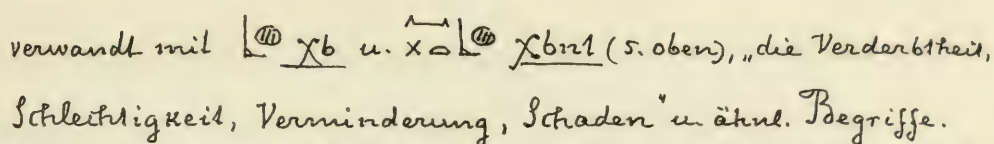 verwandt mit χb u. χbnt (s. oben), „die Verderbtheit,
Schlechtigkeit, Verminderung, Schaden" u. ähnl. Begriffe.